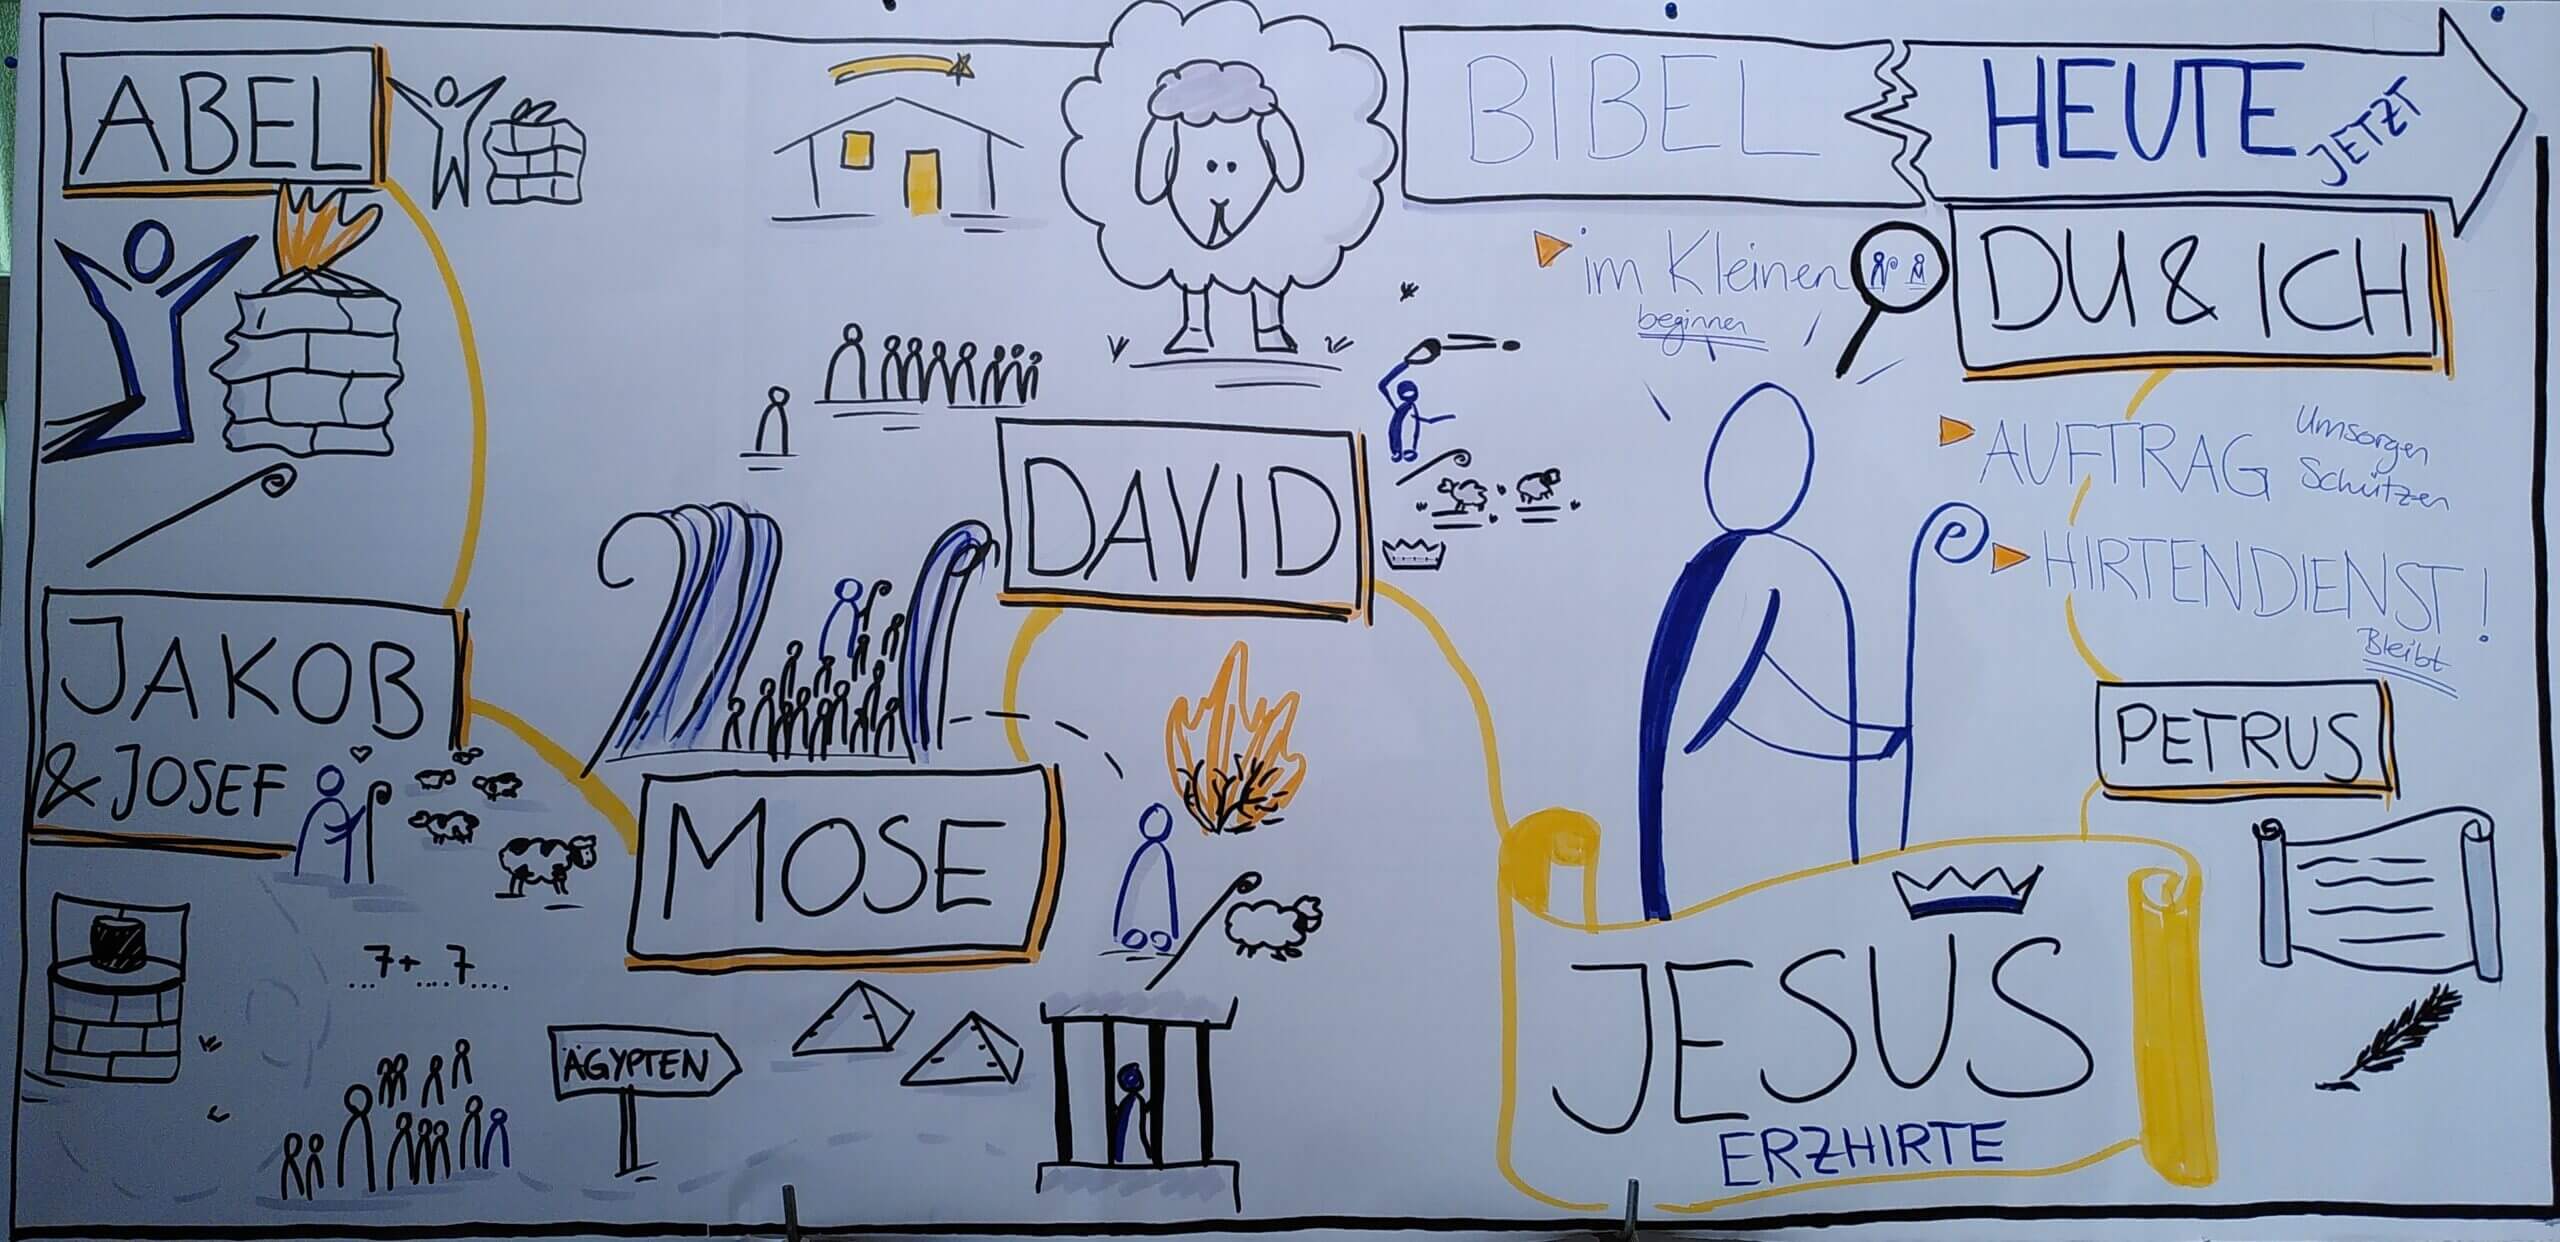 ABEL
BIBEL
HEUTE
JETZT
im Kleinen
beginnen
DU & ICH
AUFTRAG
Umsorgen
Schützen
HIRTENDIENST!
Bleibt
DAVID
JAKOB
& JOSEF
MOSE
PETRUS
...7+....7....
ÄGYPTEN
JESUS
ERZHIRTE